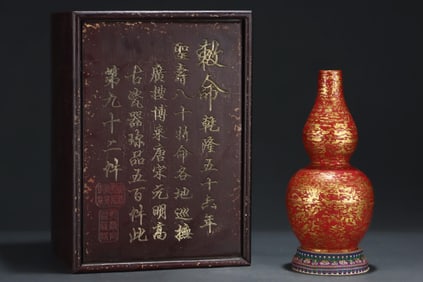 敕命乾隆五十六年
聖壽八十特命各地巡撫
廣搜博采唐宋元明高
古瓷器珍品五百件此
第九十二件